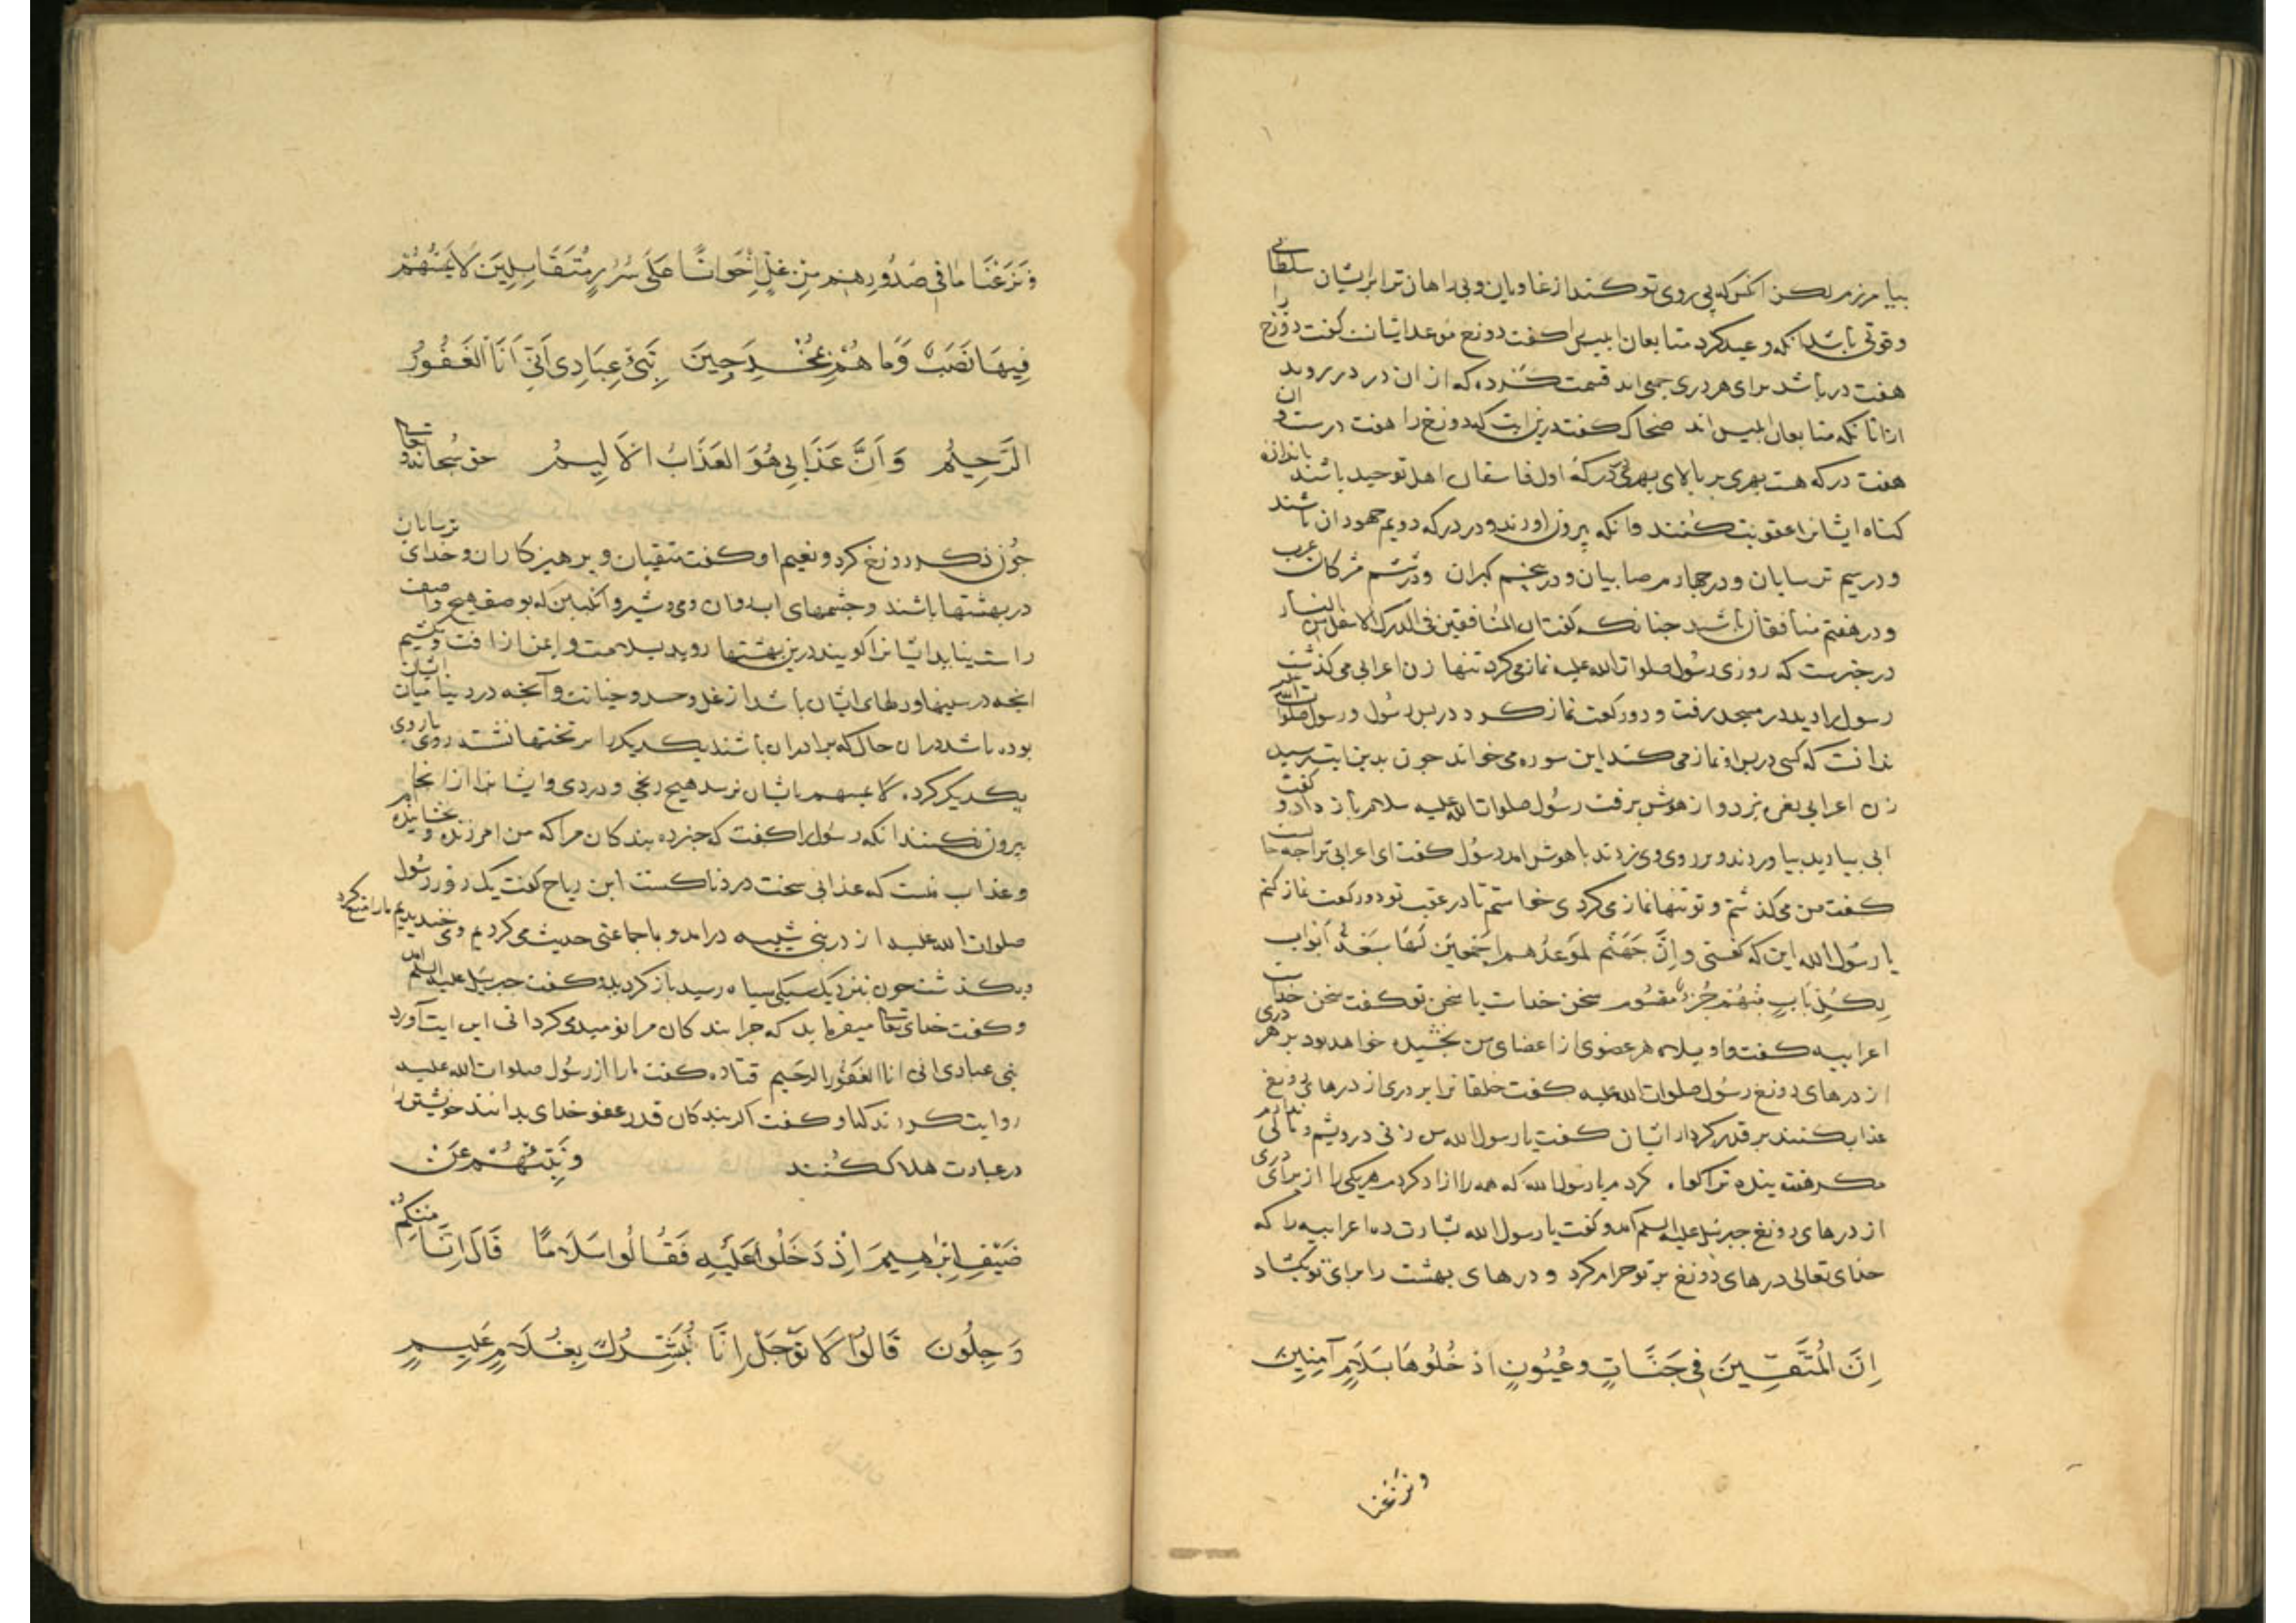 بیامرزم لکن انکس که پی روی تو کند از غاویان و بی راهان ترا بر ایشان سلطانی
و قوتی باشد انکه وعید کرد متابعان ابلیس را کفت دوزخ موعد ایشانست کفت دوزخ را
هفت در باشد برای هر دری جمعی اند قسمت کرده که از ان در در روند
ازانانکه متابعان ابلیس اند ضحاک کفت درین ایت که دوزخ را هفت درست و ان
هفت درکه هست بهری بر بالای بهری درکۀ اول فاسقان اهل توحید باشند باندازه
کناه ایشانرا عقوبت کنند وانکه بیرون اورند و در درکه دویم جهودان باشند
و در سیم ترسایان و در چهارم صابیان و در پنجم کبران و در ششم مشرکان عرب
و در هفتم منافقان باشند جنانکه کفت ان المنافقین فی الدرک الاسفل من النار
در خبرست که روزی رسول صلوات الله علیه نماز می کرد تنها زن اعرابی می کذشت
رسول را دید در مسجد رفت و دو رکعت نماز کرد در پس رسول و رسول صلوات الله علیه
ندانست که کسی در پس او نماز می کند این سوره می خواند جون بدین ایت رسید
زن اعرابی نعره بزد و از هوش برفت رسول صلوات الله علیه سلام باز داد و کفت
ابی بیارید بیاوردند و بر روی وی زدند با هوش امد رسول کفت ای اعرابی ترا جه حالست
کفت من می کذشتم و تو تنها نماز می کردی خواستم تا در عقب تو دو رکعت نماز کنم
یا رسول الله این که کفتی وَاِنَّ جَهَنَّم لمَوعدُهم اَجْمَعِینَ لَهَا سَبْعَةُ اَبْوَاب
لِکُلِّ بَابٍ مِنْهُمْ جُزْءٌ مَقْسُوم سخن خداست یا سخن تو کفت سخن خداست
اعرابیه کفت واویلاه هر عضوی از اعضای من بخشیده خواهد بود بر هر دری
از درهای دوزخ رسول صلوات الله علیه کفت خلقانرا بر دری از درهای دوزخ
عذاب کنند بر قدر کردار ایشان کفت یا رسول الله من زنی درویشم و مالی ندارم
مکر هفت بنده ترا کواه کردم یا رسول الله که همه را ازاد کردم هر یکی را از برای دری
از درهای دوزخ جبرئیل علیه السلم آمد و کفت یا رسول الله بشارت ده اعرابیه را که
خدای تعالی درهای دوزخ بر تو حرام کرد و درهای بهشت را برای تو بکشاد
اِنَّ الْمُتَّقِینَ فِی جَنَّاتٍ وَعُیُونٍ اُدْخُلُوهَا بِسَلَامٍ آمِنِینَ
ونزعنا
وَنَزَعْنَا مَا فِی صُدُورِهِمْ مِنْ غِلٍّ اِخْوَانًا عَلَی سُرُرٍ مُتَقَابِلِینَ لَا یَمَسُّهُمْ
فِیهَا نَصَبٌ وَمَا هُمْ مِنْهَا بِمُخْرَجِینَ نَبِّئْ عِبَادِی اَنِّی اَنَا الْغَفُورُ
الرَّحِیمُ وَاَنَّ عَذَابِی هُوَ الْعَذَابُ الْاَلِیمُ حق سبحانه و تعالی
جون ذکر دوزخ کرد و نعیم او کفت متقیان و پرهیزکاران و خدای ترسایان
در بهشتها باشند و جشمهای اب روان و می و شیر و انکبین که بوصف هیچ واصف
راست نیاید ایشانرا کویند درین بهشتها روید بسلامت و ایمن از افت و بکشیم
انجه در سینها و دلهای ایشان باشد از غل و حسد و خیانت و آنجه در دنیا میان ایشان
بوده باشد در ان حال که برادران باشند یکدیکر را بر تختها نشسته روی باروی
یکدیکر کرده لا یمسهم بایشان نرسد هیچ رنجی و دردی و ایشانرا از انجا
بیرون نکنند انکه رسول را کفت که خبر ده بندکان مرا که من امرزنده و بخشاینده ام
و عذاب منست که عذابی سخت دردناکست ابن ریاح کفت یک روز رسول
صلوات الله علیه از در بنی شیبه درامد و با جماعتی حدیث می کردیم و می خندیدیم مارا منع کرد
و بکذشت جون بنزدیک سنکی سیاه رسید باز کردید و کفت جبرئیل علیه السلم امد
و کفت خدای تعالی میفرماید که جرا بندکان مرا نومید می کردانی این ایت آورد
نبی عبادی انی انا الغفور الرحیم قتاده کفت مارا از رسول صلوات الله علیه
روایت کردند که او کفت اکر بندکان قدر عفو خدای بدانند خویشتن را
در عبادت هلاک کنند وَنَبِّئْهُمْ عَنْ
ضَیْفِ اِبْرٰهِیمَ اِذْ دَخَلُوا عَلَیْهِ فَقَالُوا سَلَامًا قَالَ اِنَّا مِنْکُمْ
وَجِلُونَ قَالُوا لَا تَوْجَلْ اِنَّا نُبَشِّرُکَ بِغُلَامٍ عَلِیمٍ